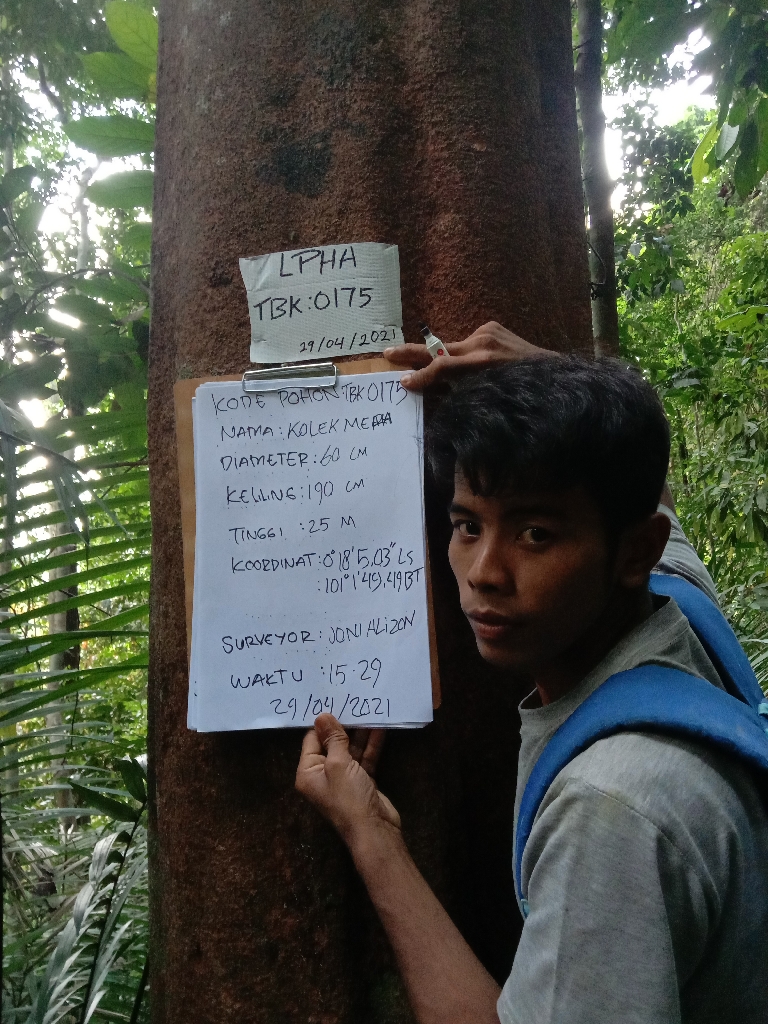 LPHA
TBK:0175
29/04/2021
KODE POHON:TBK0175
NAMA:KOLEK MERA
DIAMETER:60 CM
KELLING:190 CM
TINGGI:25 M
KOORDINAT:0°18'5,03" LS
:101°1'49,49BT
SURVEYOR:JONI ALIZON
WAKTU:15.29
29/04/2021